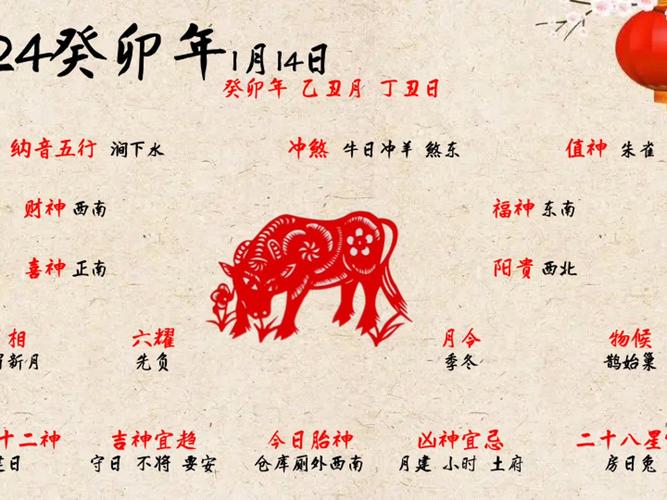 24癸卯年1月14日
癸卯年 乙丑月 丁丑日
纳音五行 涧下水
冲煞 牛日冲羊 煞东
值神 朱雀
财神 西南
福神 东南
喜神 正南
阳贵 西北
相 六耀 月令 物候
新月 先负 季冬 鹊始巢
十二神 吉神宜趋 今日胎神 凶神宜忌 二十八星
建日 守日 不将 要安 仓库厕外西南 月建 小时 土府 房日兔